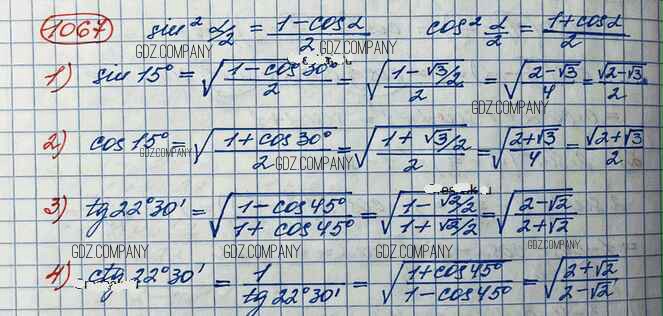 1067 sin² α/2 = (1-cosα)/2 cos² α/2 = (1+cosα)/2
GDZ.COMPANY GDZ.COMPANY
1) sin 15° = √((1-cos 30°)/2) = √((1-√3/2)/2) = √((2-√3)/4) = √(2-√3)/2
GDZ.COMPANY
2) cos 15° = √((1+cos 30°)/2) = √((1+√3/2)/2) = √((2+√3)/4) = √(2+√3)/2
GDZ.COMPANY GDZ.COMPANY GDZ.COMPANY
3) tg 22°30' = √((1-cos 45°)/(1+cos 45°)) = √((1-√2/2)/(1+√2/2)) = √((2-√2)/(2+√2))
GDZ.COMPANY GDZ.COMPANY GDZ.COMPANY GDZ.COMPANY
4) ctg 22°30' = 1/(tg 22°30') = √((1+cos 45°)/(1-cos 45°)) = √((2+√2)/(2-√2))